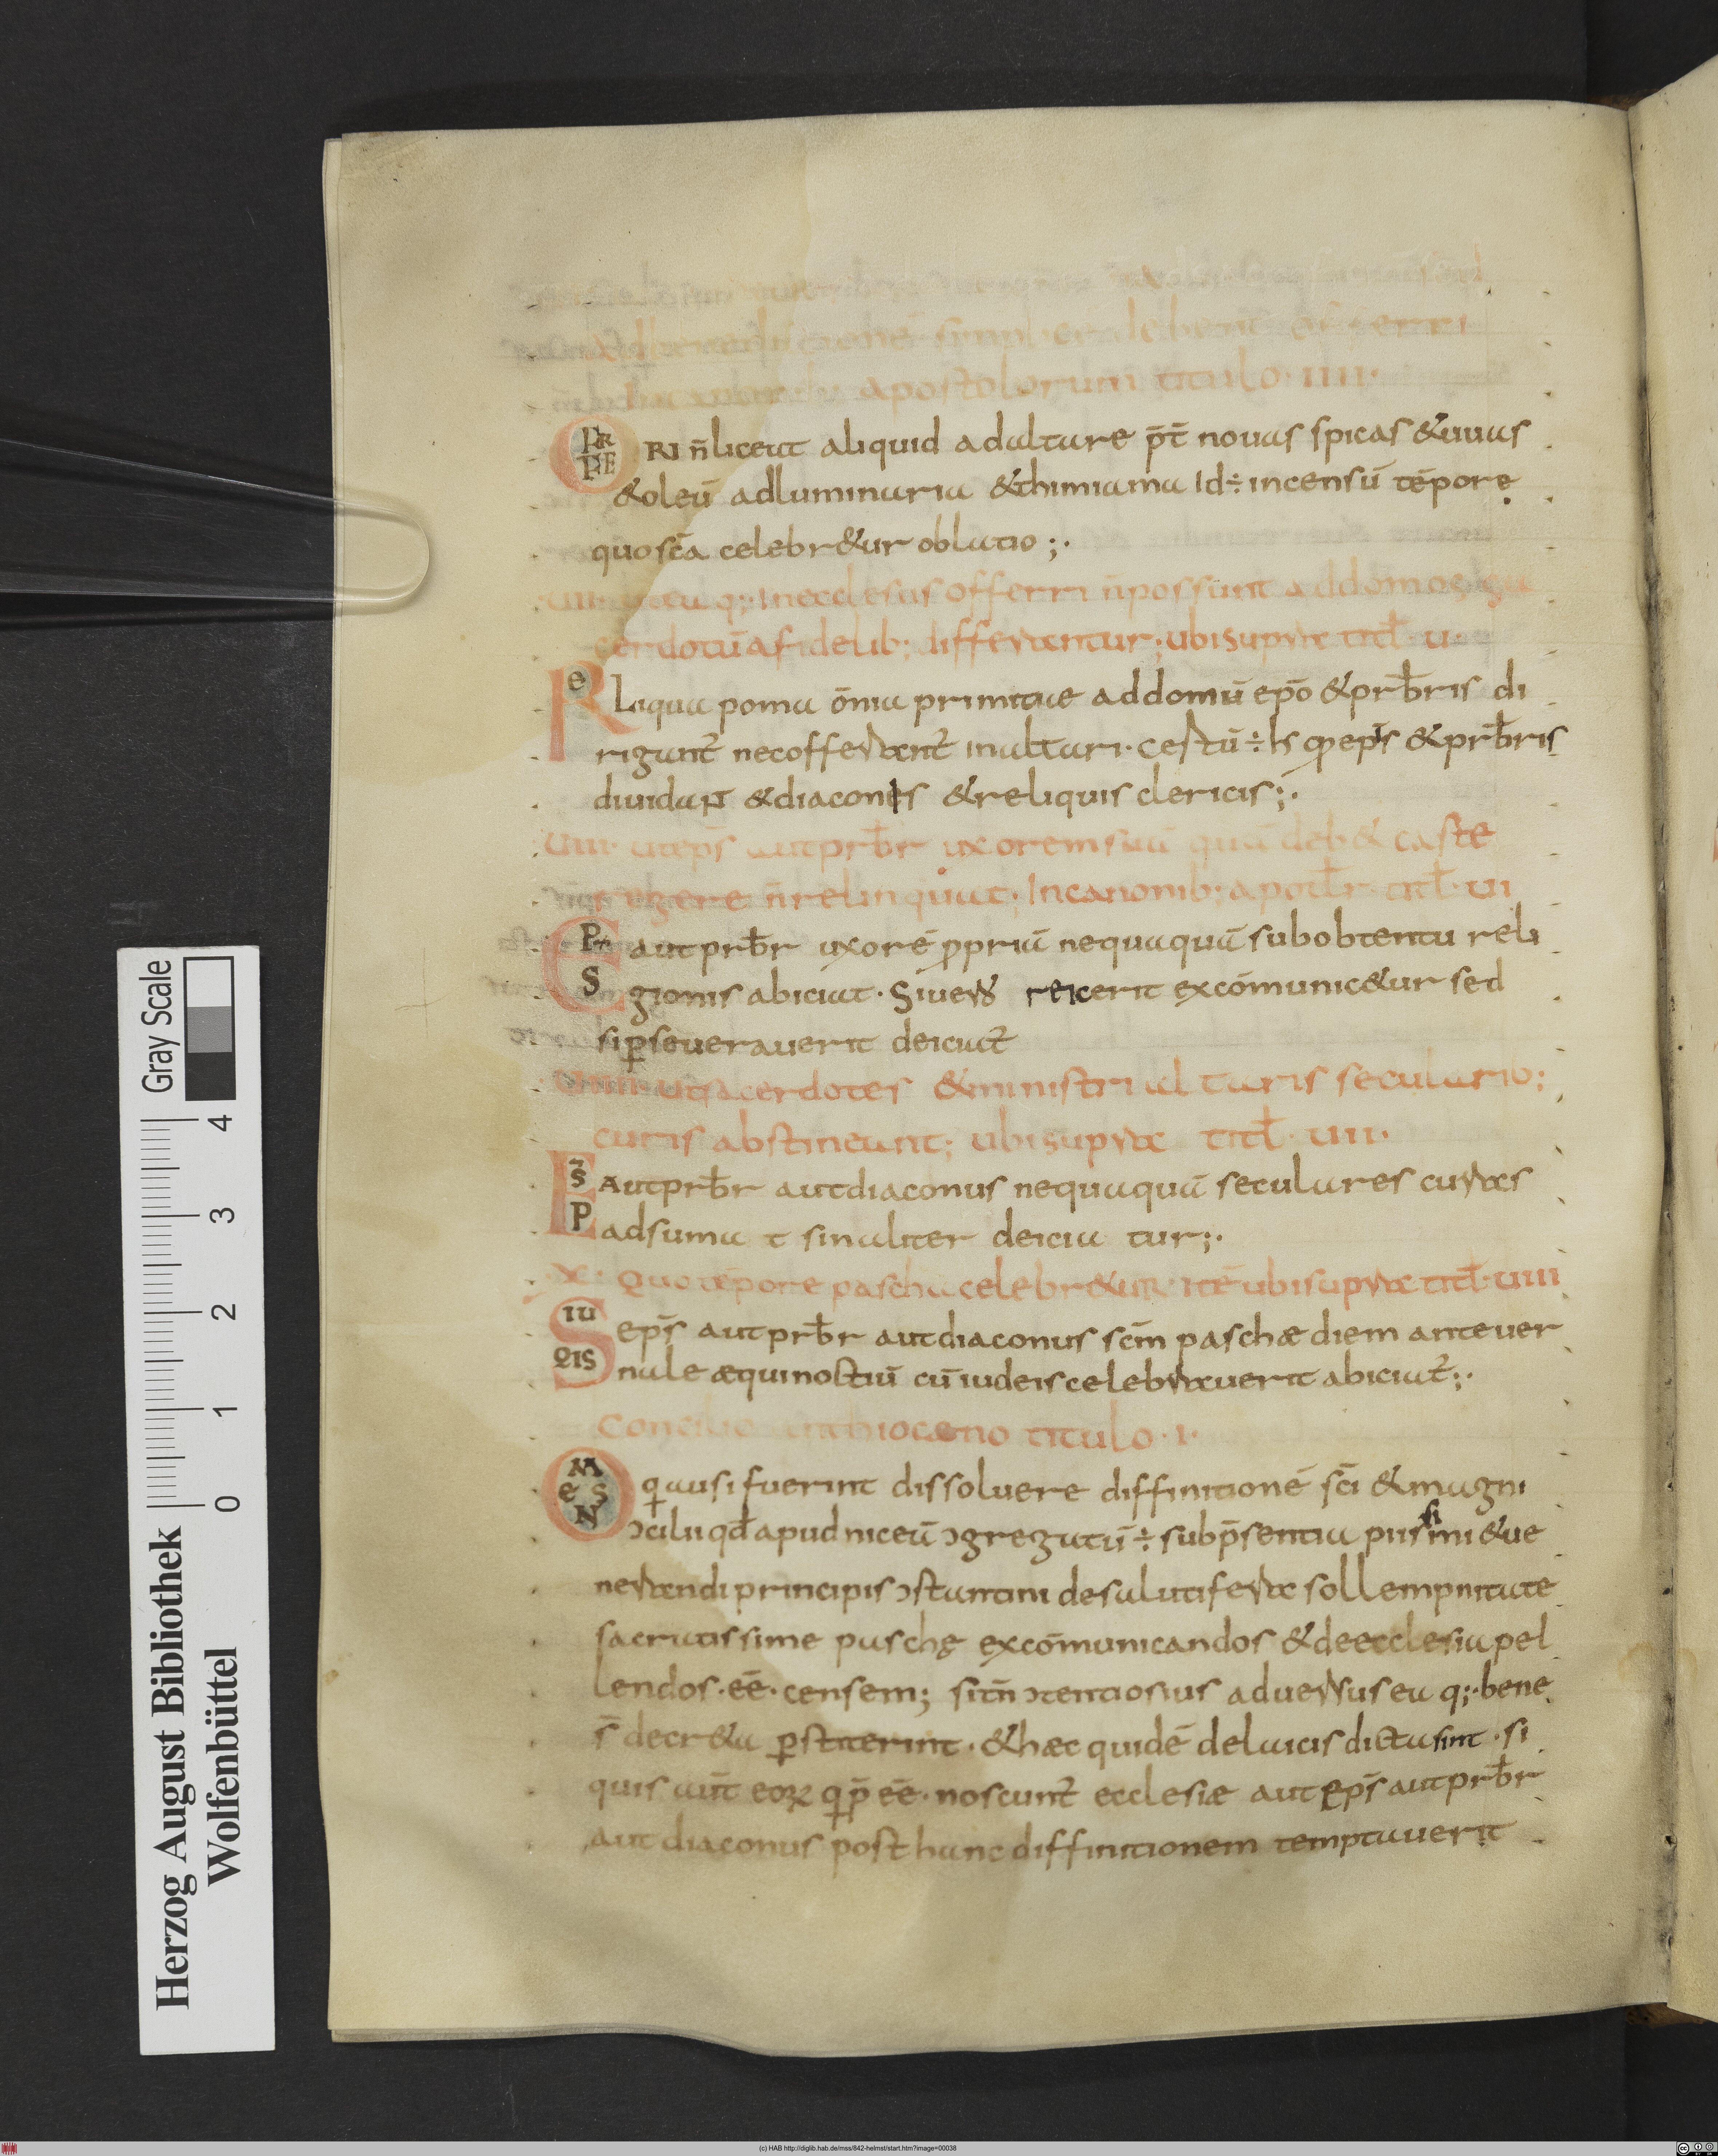 apostolorum titulo · IIII ·
OFFERRI n̄ liceat aliquid ad altare p̄t̄ novas spicas & uuas
& oleū ad luminaria & thimiama Id ÷ incensū tēpore
quo sc̄a celebr&ur oblatio ;·
q; In ecclesiis offerri n̄ possunt ad domos
cerdotū a fidelib; differantur ; ubi supra titl̄ · u
ReLiqua poma ōnia primitiae ad domū ep̄o & prb̄ris di
rigant̄ nec offerant̄ in altari · Certū ÷ h̄s qđ ep̄s & prb̄ris
diuidant & diaconis & reliquis clericis ;·
VIII · ut ep̄s aut prb̄r uxorem suā quā deb& caste
regere n̄ relinquat · In canonib; apostl̄r titl̄ · ui
EPS aut prb̄r uxorē ꝓpriā nequaquā sub obtentu reli
gionis abiciat · Si uero reicerit excōmunic&ur sed
si ꝑseuerauerit deiciat̄
ut sacerdotes & ministri altaris secularib;
curis abstineant ; ubi supra titl̄ · uii ·
EPS̄ Aut prb̄r aut diaconus nequaquā seculares curas
adsuma t sin aliter deicia tur ;·
X · Quo tēpore pascha celebr&ur · itē ubi supra titl̄ · uiii
SIUQIS ep̄s aut prb̄r aut diaconus sc̄m paschæ diem ante uer
nale æquinoctiū cū iudeis celebrauerit abiciat̄ ;·
Concilio anthioceno titulo · I ·
OMNeS q ausi fuerint dissoluere diffinitionē sc̄i & magni
ↄcilii qđ apud niceū ↄgregatū ÷ sub p̄sentia piissimi & ue
nerandi principis ↄstantini de salutifera sollempnitate
sacratissime paschę excōmunicandos & de ecclesia pel
lendos · eē · censem; si tn̄ ↄtentiosius aduersus ea q; · bene
s̄ decr&a ꝑstiterint · & hæc quidē de laicis dicta sint · si
quis aut̄ eoꝝ q p̄ eē · noscunt̄ ecclesiæ aut ep̄s aut prb̄r
aut diaconus post hanc diffinitionem temptauerit
Herzog August Bibliothek
Wolfenbüttel
0 1 2 3 4
Gray Scale
(c) HAB http://diglib.hab.de/mss/842-helmst/start.htm?image=00038